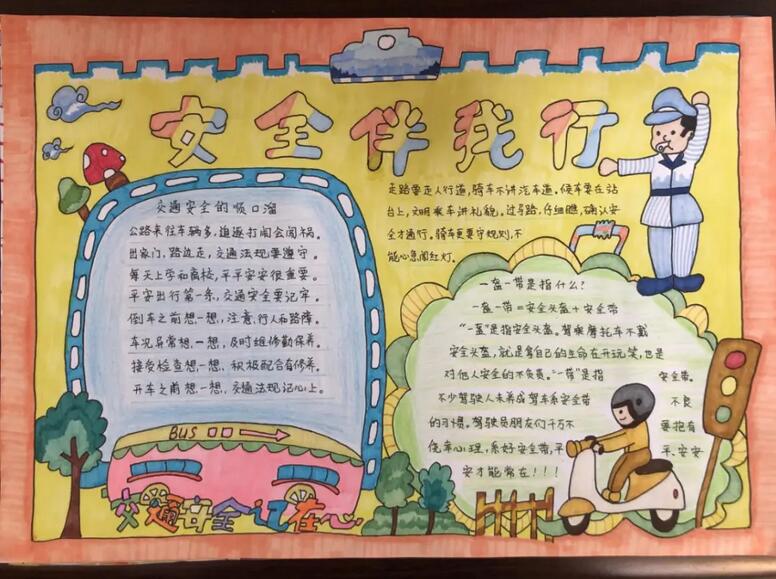 安全伴我行
走路要走人行道,骑车不讲汽车道。候车要在站
台上,文明乘车讲礼貌。过马路,仔细瞧,确认安
全才通行。骑车更要守规则,不
能心急闯红灯。
交通安全的顺口溜
公路来往车辆多,追逐打闹会闯祸。
出家门,路边走,交通法规要遵守。
每天上学和离校,平平安安很重要。
平安出行第一条,交通安全要记牢。
倒车之前想一想,注意行人和路障。
车况异常想一想,及时维修勤保养。
接受检查想一想,积极配合有修养。
开车之前想一想,交通法规记心上。
BUS
交通安全记在心
一盔一带是指什么?
一盔一带=安全头盔+安全带
“一盔”是指安全头盔。驾乘摩托车不戴
安全头盔,就是拿自己的生命在开玩笑,也是
对他人安全的不负责。“一带”是指 安全带。
不少驾驶人未养成驾车系安全带 不良
的习惯,驾驶员朋友们千万不 要抱有
侥幸心理,系好安全带,平 平、安安
安才能常在!!!